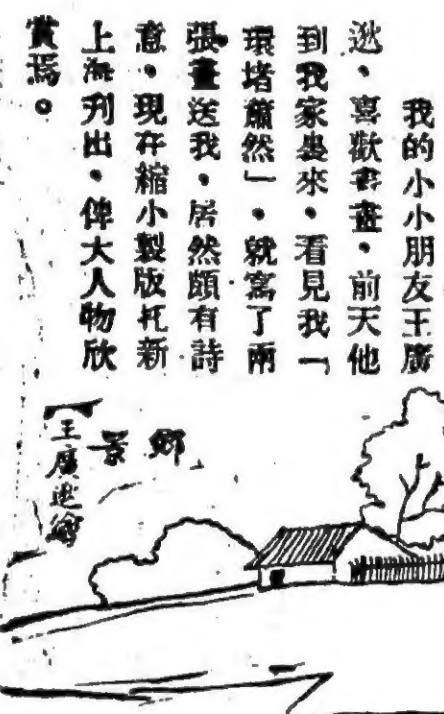 我的小小朋友王廣
逖,喜歡書畫,前天他
到我家裏來,看見我「
環堵蕭然」,就寫了兩
張畫送我,居然頗有詩
意。現在縮小製版托新
上海刊出,俾大人物欣
賞焉。
鄉景
王廣逖繪